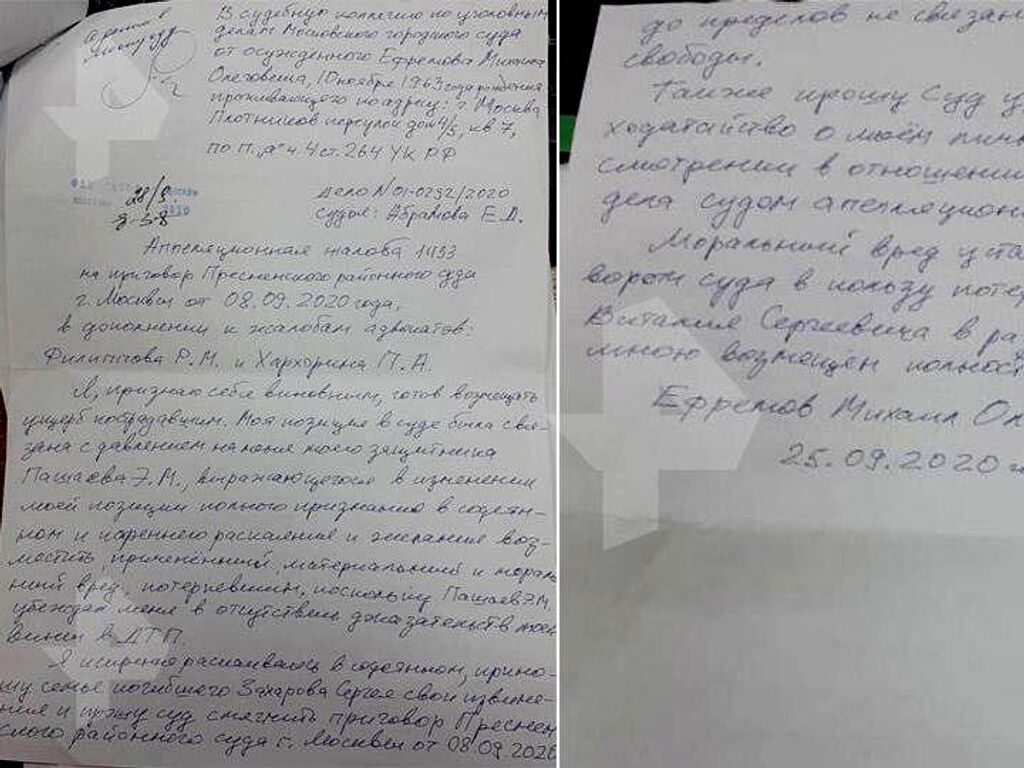 В судебную коллегию по уголовным
делам Московского городского суда
от осужденного Ефремова Михаила
Олеговича, 10 ноября 1963 года рождения
проживающего по адресу: г. Москва
Плотников переулок дом 4/5, кв 7,
по п. „а" ч. 4 ст. 264 УК РФ
28/9
дело № 01-0232/2020
судья: Абрамова Е.Д.
Аппеляционная жалоба
на приговор Пресненского районного суда
г. Москвы от 08.09.2020 года,
в дополнении к жалобам адвокатов:
Филиппова Р.М. и Хархорина П.А.
Я, признаю себя виновным, готов возмещать
ущерб пострадавшим. Моя позиция в суде была свя-
зана с давлением на меня моего защитника
Пашаева Э.М., выражающегося в изменении
моей позиции полного признания в содеян-
ном и искреннего раскаяния и желание воз-
местить причинённый, материальный и мораль
ный вред, потерпевшим, поскольку Пашаев Э.М.
убеждал меня в отсутствии доказательств моей
вины в ДТП.
Я искренне раскаиваюсь в содеянном, прино-
шу семье погибшего Захарова Сергея свои извине-
ния и прошу суд смягчить приговор Преснен
ского районного суда г. Москвы от 08.09.2020
до пределов не связан
свободы.
Также прошу Суд у
ходатайство о моём
смотрении в отношении
дела судом апелляцион
Моральный вред уста
вором суда в пользу поте
Виталия Сергеевича в ра
мною возмещён полност
Ефремов Михаил Ол
25.09.2020 г